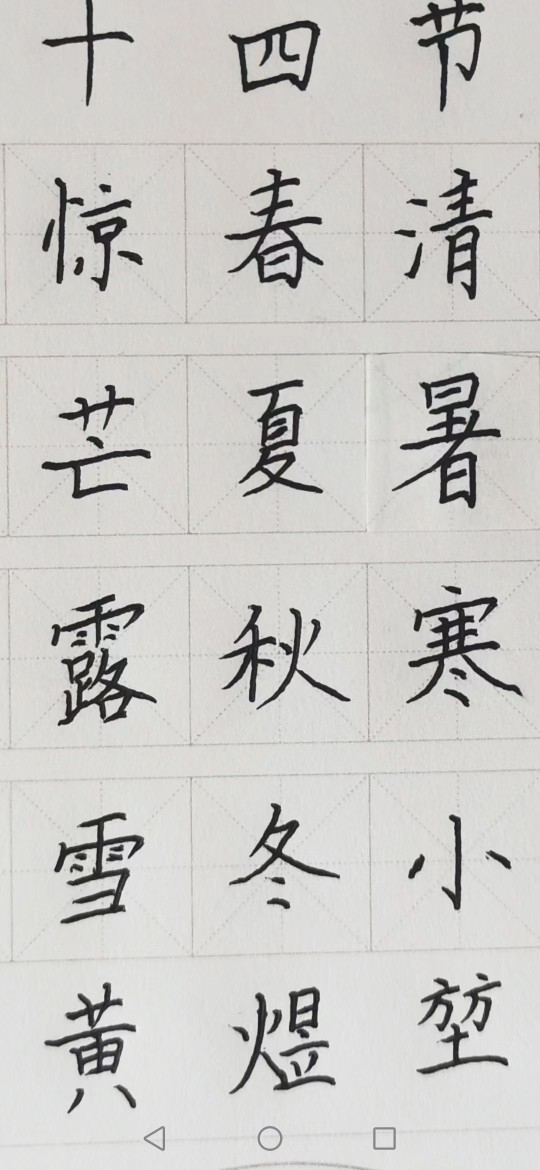 十四节
惊春清
芒夏暑
露秋寒
雪冬小
黄煜堃